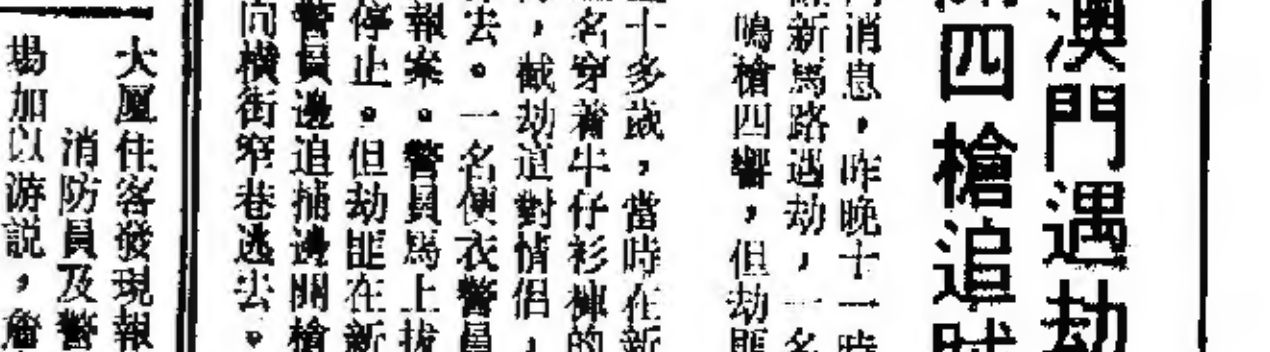 澳門遇劫
四槍追賊
消息，昨晚十一時
新馬路遇劫，一名
鳴槍四響，但劫匪
十多歲，當時在新
名穿着牛仔衫褲的
，截劫這對情侶，
去。一名便衣警員
報案。警員馬上拔
停止。但劫匪在新
警員邊追捕邊開槍
向橫街窄巷逃去。
大厦住客發現報
消防員及警
場加以游說，